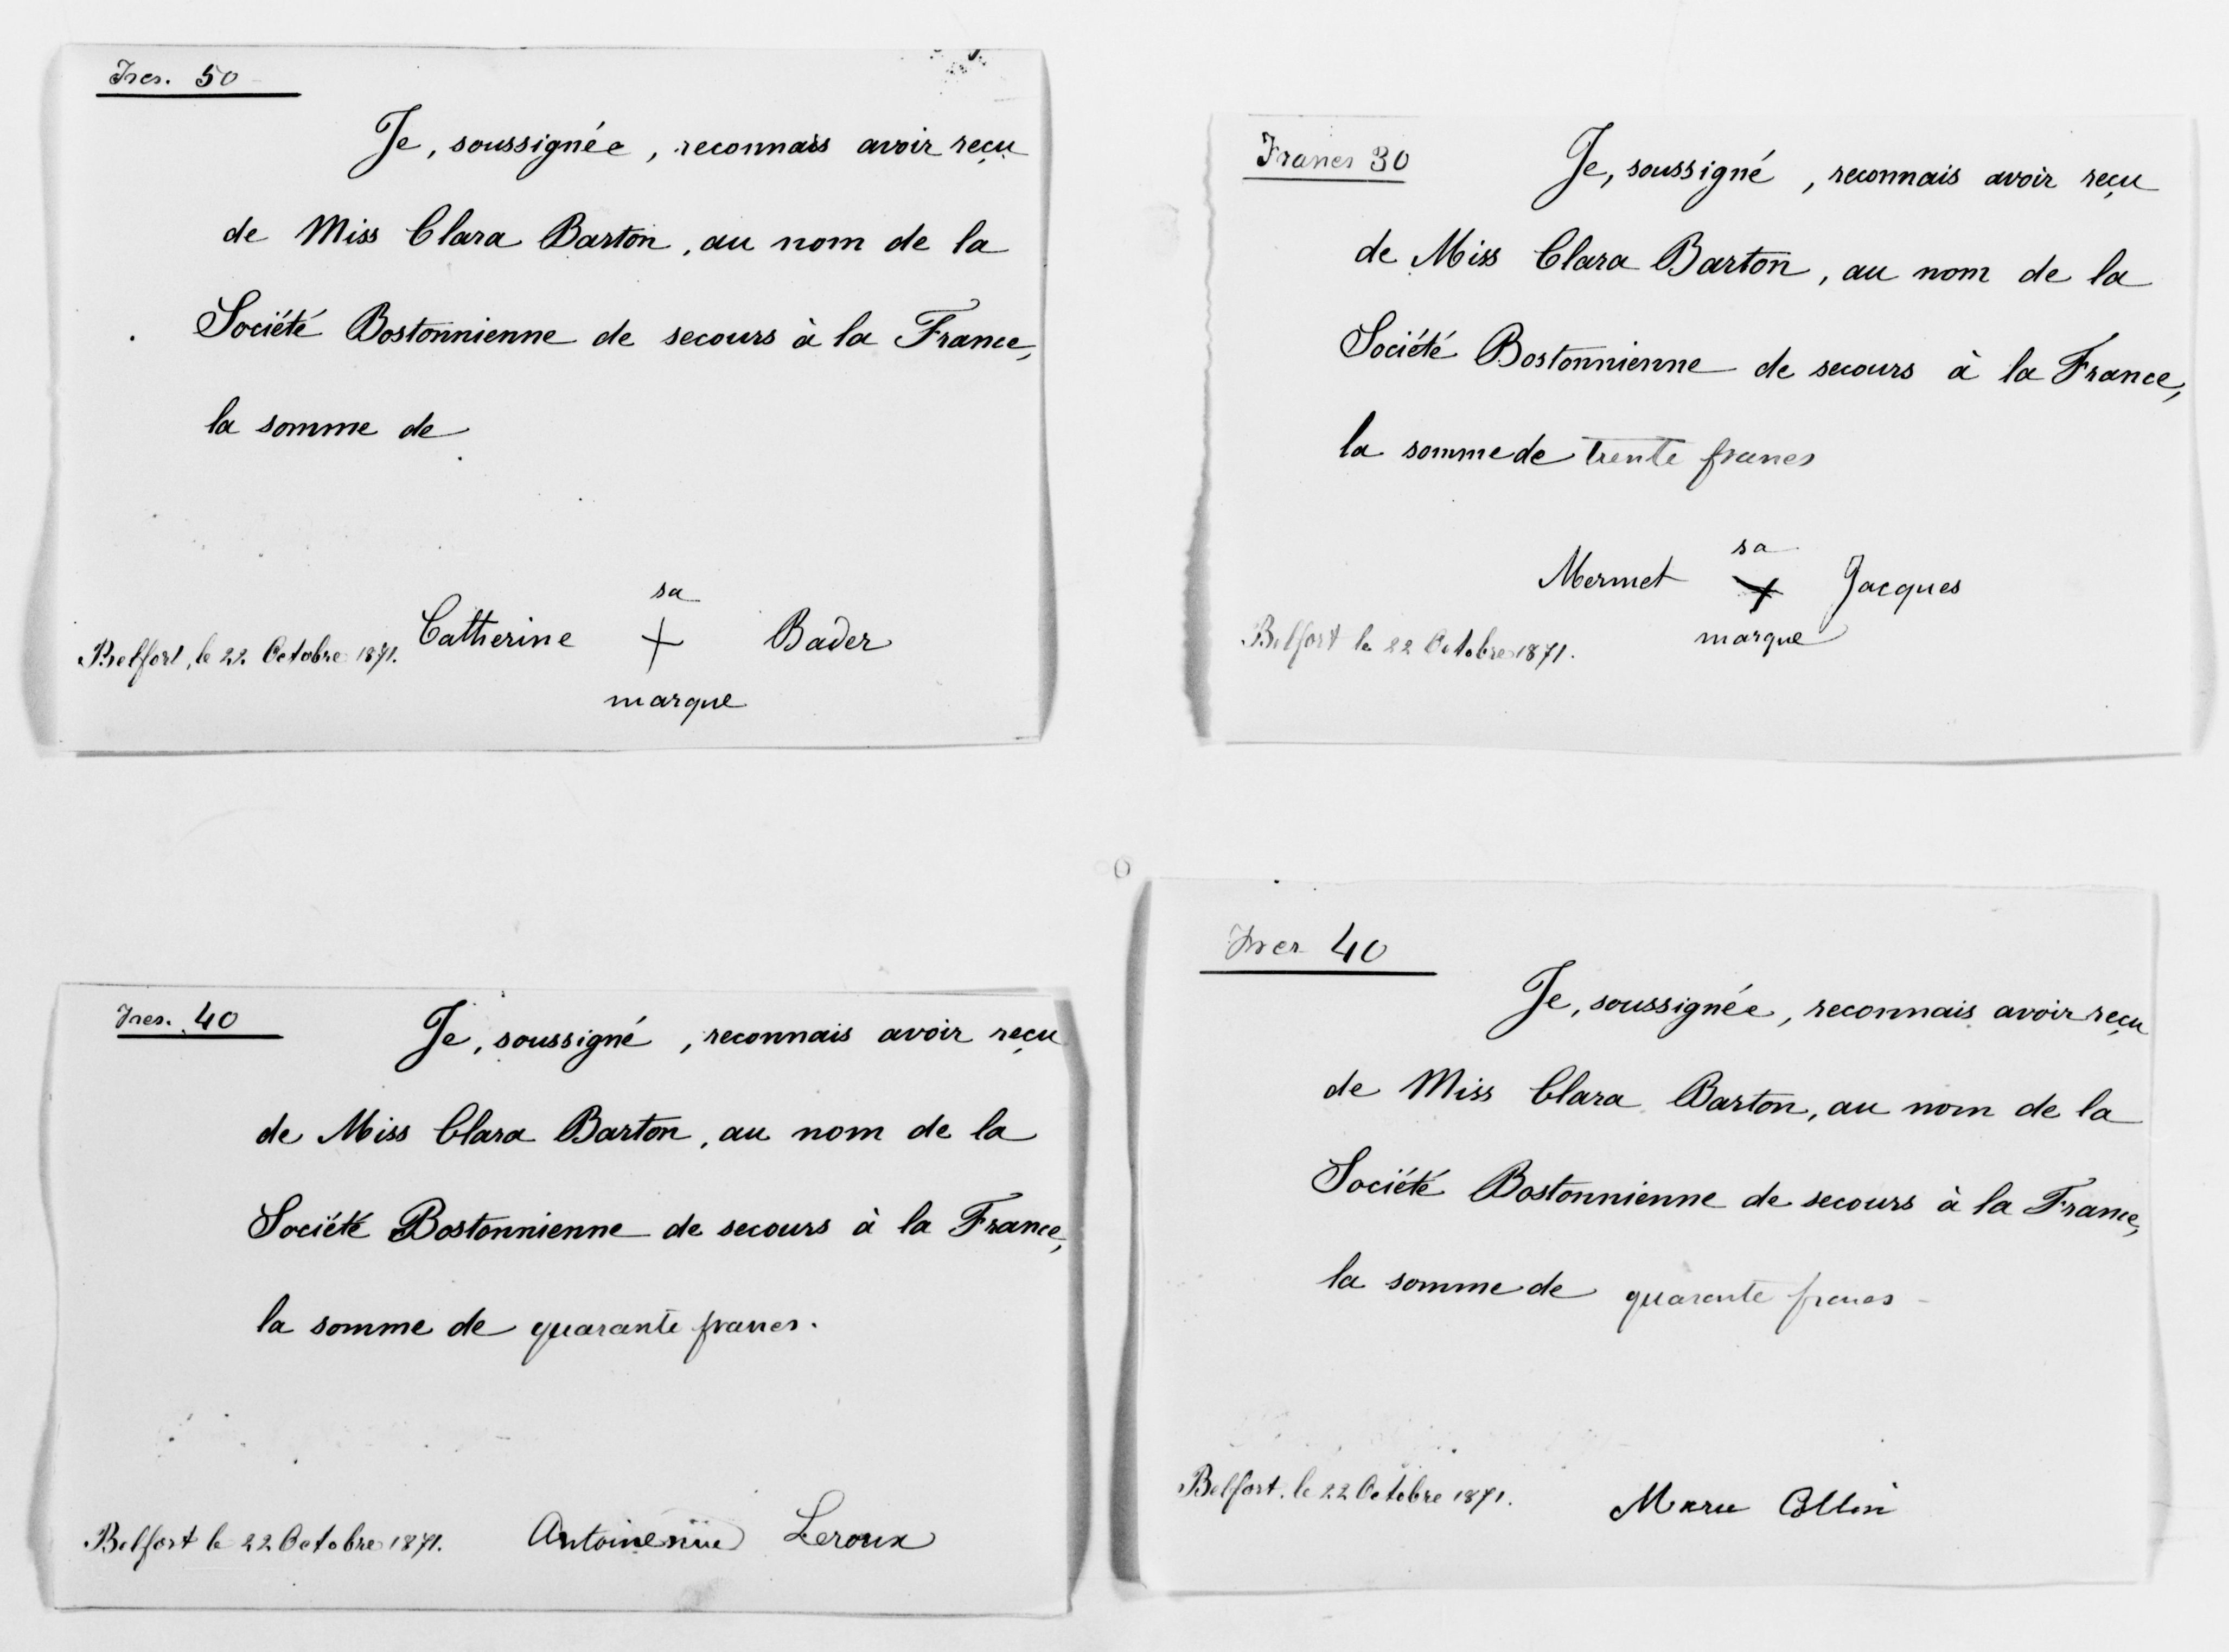 Frcs. 50
Je, soussignée, reconnais avoir reçu
de Miss Clara Barton, au nom de la
Société Bostonnienne de secours à la France,
la somme de
sa
Catherine + Bader
Belfort, le 22 Octobre 1871.
marque
Francs 30
Je, soussigné, reconnais avoir reçu
de Miss Clara Barton, au nom de la
Société Bostonnienne de secours à la France,
la somme de trente francs
sa
Mermet + Jacques
marque
Belfort le 22 Octobre 1871.
Frcs. 40
Je, soussigné, reconnais avoir reçu
de Miss Clara Barton, au nom de la
Société Bostonnienne de secours à la France,
la somme de quarante francs.
Belfort le 22 Octobre 1871. Leroux
Frcs 40
Je, soussignée, reconnais avoir reçu
de Miss Clara Barton, au nom de la
Société Bostonnienne de secours à la France,
la somme de quarante francs
Belfort. le 22 Octobre 1871. Marie Collin